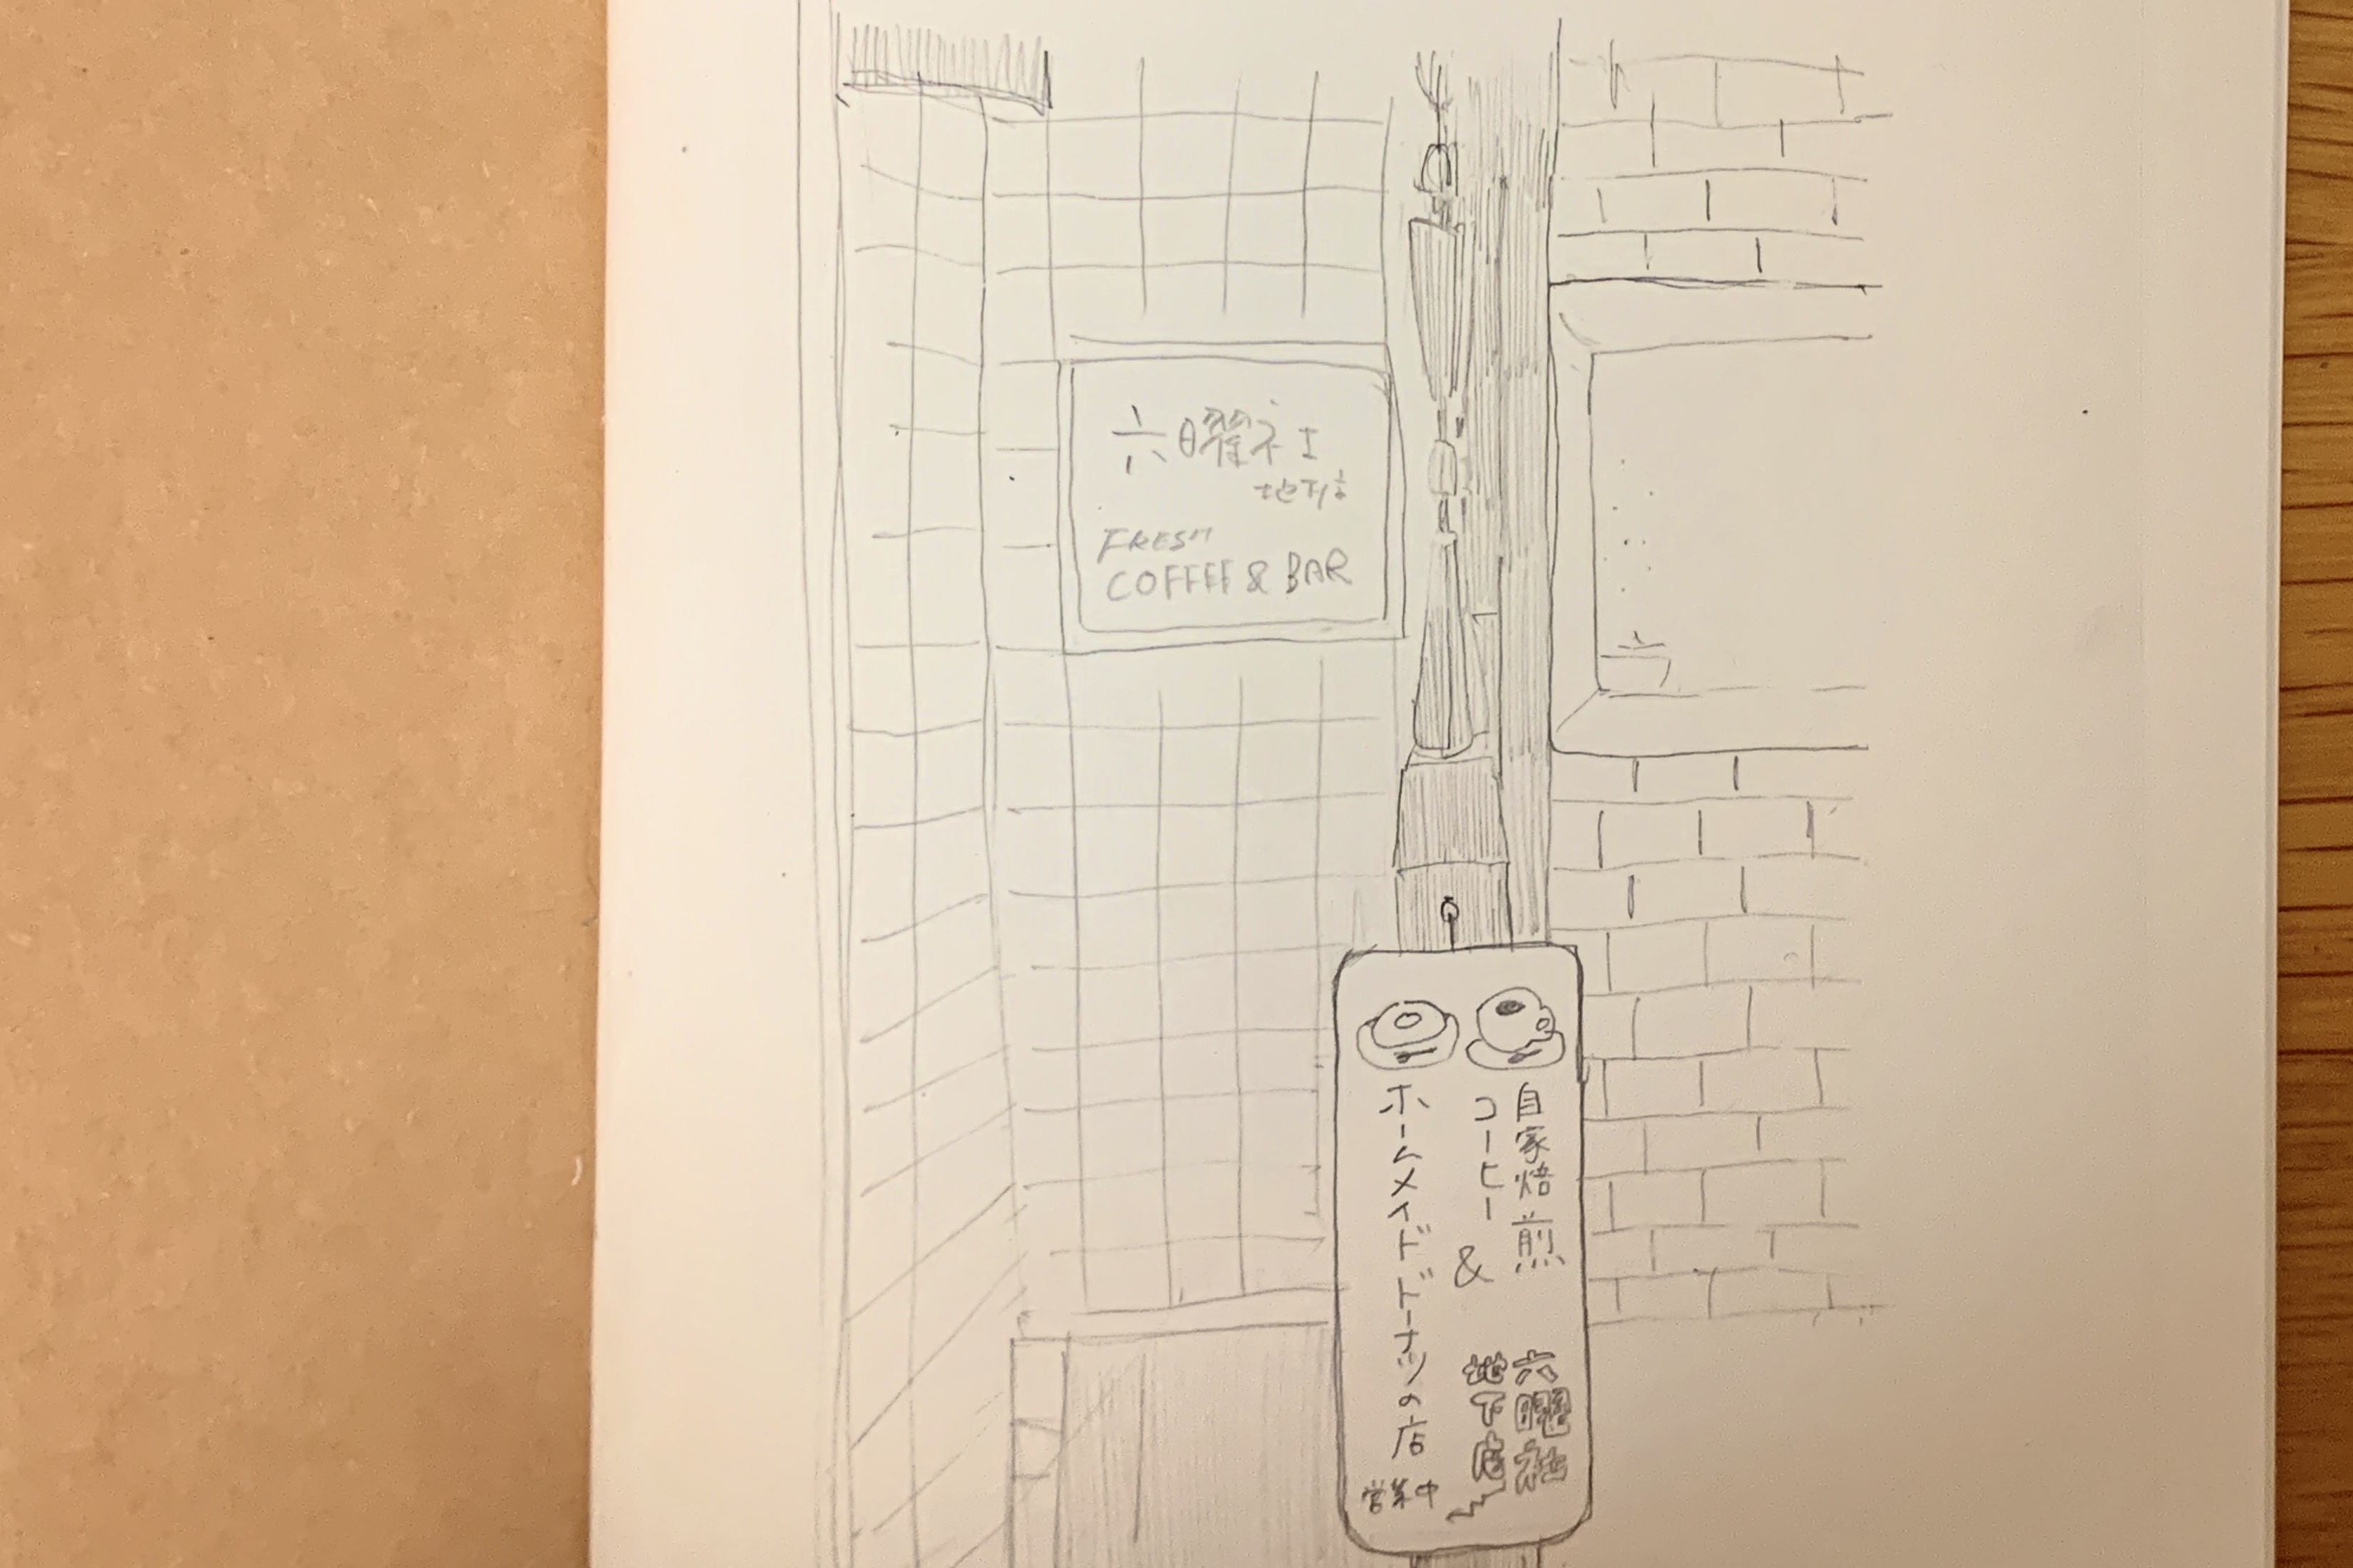 六曜社
地下店
FRESH
COFFEE & BAR
自家焙煎
コーヒー
&
ホームメイドドーナツの店
六曜社
地下店
営業中